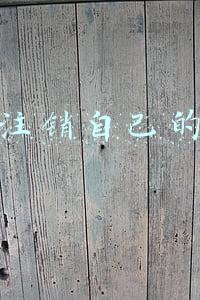 注销自己的